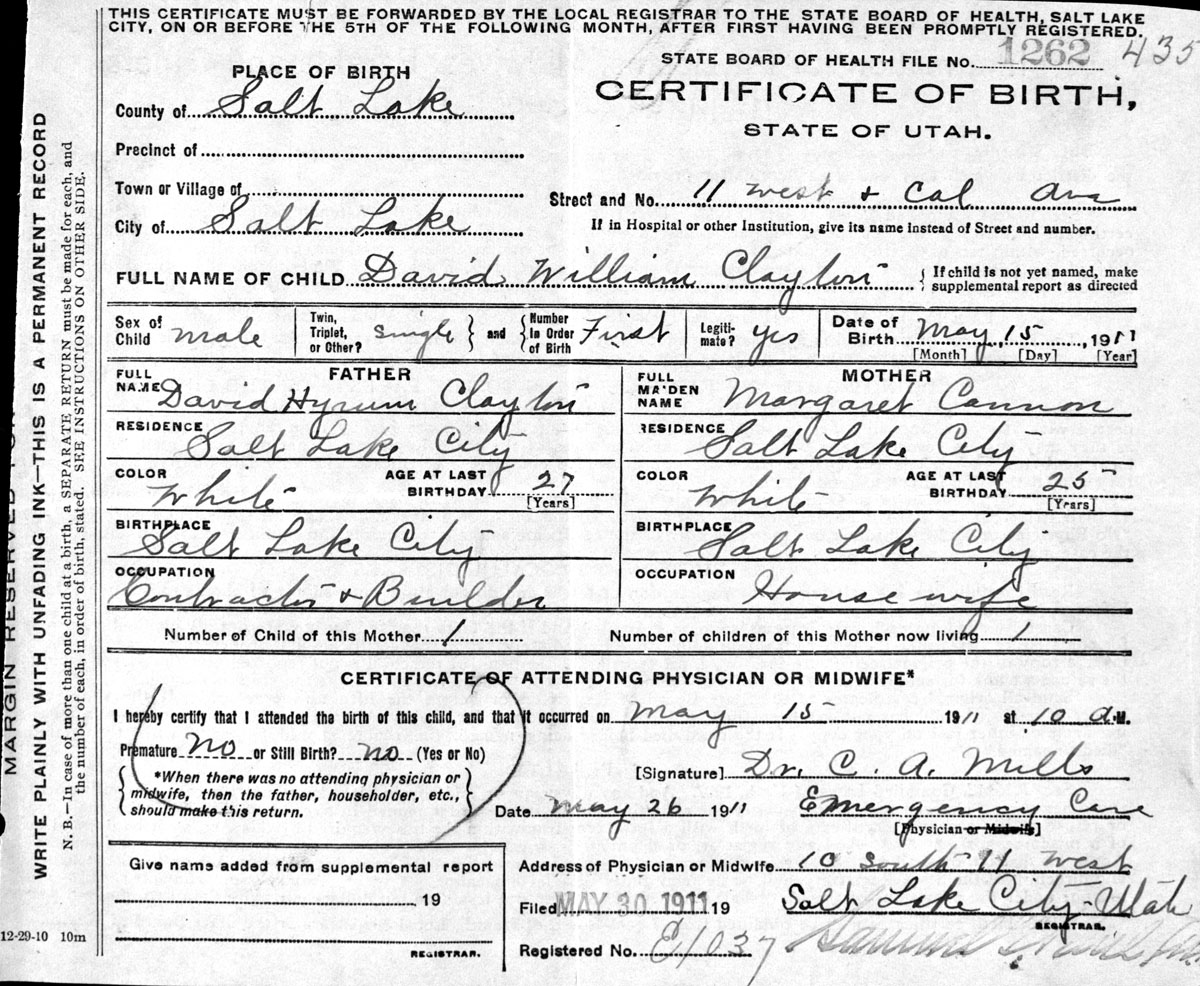 THIS CERTIFICATE MUST BE FORWARDED BY THE LOCAL REGISTRAR TO THE STATE BOARD OF HEALTH, SALT LAKE
CITY, ON OR BEFORE THE 5TH OF THE FOLLOWING MONTH, AFTER FIRST HAVING BEEN PROMPTLY REGISTERED.
STATE BOARD OF HEALTH FILE No. 1262 435
PLACE OF BIRTH
CERTIFICATE OF BIRTH,
STATE OF UTAH.
County of Salt Lake
Precinct of
Town or Village of
Street and No. 11 west & Cal Ave
City of Salt Lake
If in Hospital or other Institution, give its name instead of Street and number.
FULL NAME OF CHILD David William Clayton { If child is not yet named, make
supplemental report as directed
Sex of Child male Twin, Triplet, or Other? Single } and { Number In Order of Birth First Legiti-mate? yes Date of Birth May 15, 1911
[Month] [Day] [Year]
FATHER
FULL NAME David Hyrum Clayton
RESIDENCE Salt Lake City
COLOR White AGE AT LAST BIRTHDAY 27 [Years]
BIRTHPLACE Salt Lake City
OCCUPATION Contractor & Builder
MOTHER
FULL MAIDEN NAME Margaret Cannon
RESIDENCE Salt Lake City
COLOR White AGE AT LAST BIRTHDAY 25 [Years]
BIRTHPLACE Salt Lake City
OCCUPATION House wife
Number of Child of this Mother 1 Number of children of this Mother now living 1
CERTIFICATE OF ATTENDING PHYSICIAN OR MIDWIFE*
I hereby certify that I attended the birth of this child, and that it occurred on May 15 1911 at 10 a.M.
Premature no or Still Birth? no (Yes or No)
*When there was no attending physician or
midwife, then the father, householder, etc.,
should make this return.
[Signature] Dr. C. A. Mills
Date May 26 1911 Emergency Care
[Physician or Midwife]
Give name added from supplemental report
19
REGISTRAR.
Address of Physician or Midwife 10 South 11 West
Filed MAY 30 1911 19 Salt Lake City - Utah
REGISTRAR.
Registered No. E1037
12-29-10 10m
MARGIN RESERVED
WRITE PLAINLY WITH UNFADING INK—THIS IS A PERMANENT RECORD
N. B.—In case of more than one child at a birth, a SEPARATE RETURN must be made for each, and
the number of each, in order of birth, stated. SEE INSTRUCTIONS ON OTHER SIDE.